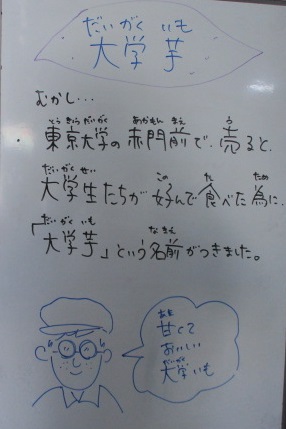 だいがく いも
大学 芋
むかし…
とうきょうだいがく あかもん まえ う
東京大学の赤門前で、売ると、
だいがくせい この た ため
大学生たちが 好んで食べた為に、
だいがくいも なまえ
「大学芋」という名前がつきました。
あま
甘くて
おいしい
だいがく
大学いも